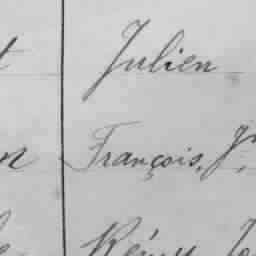 Julien
François,
Rémy